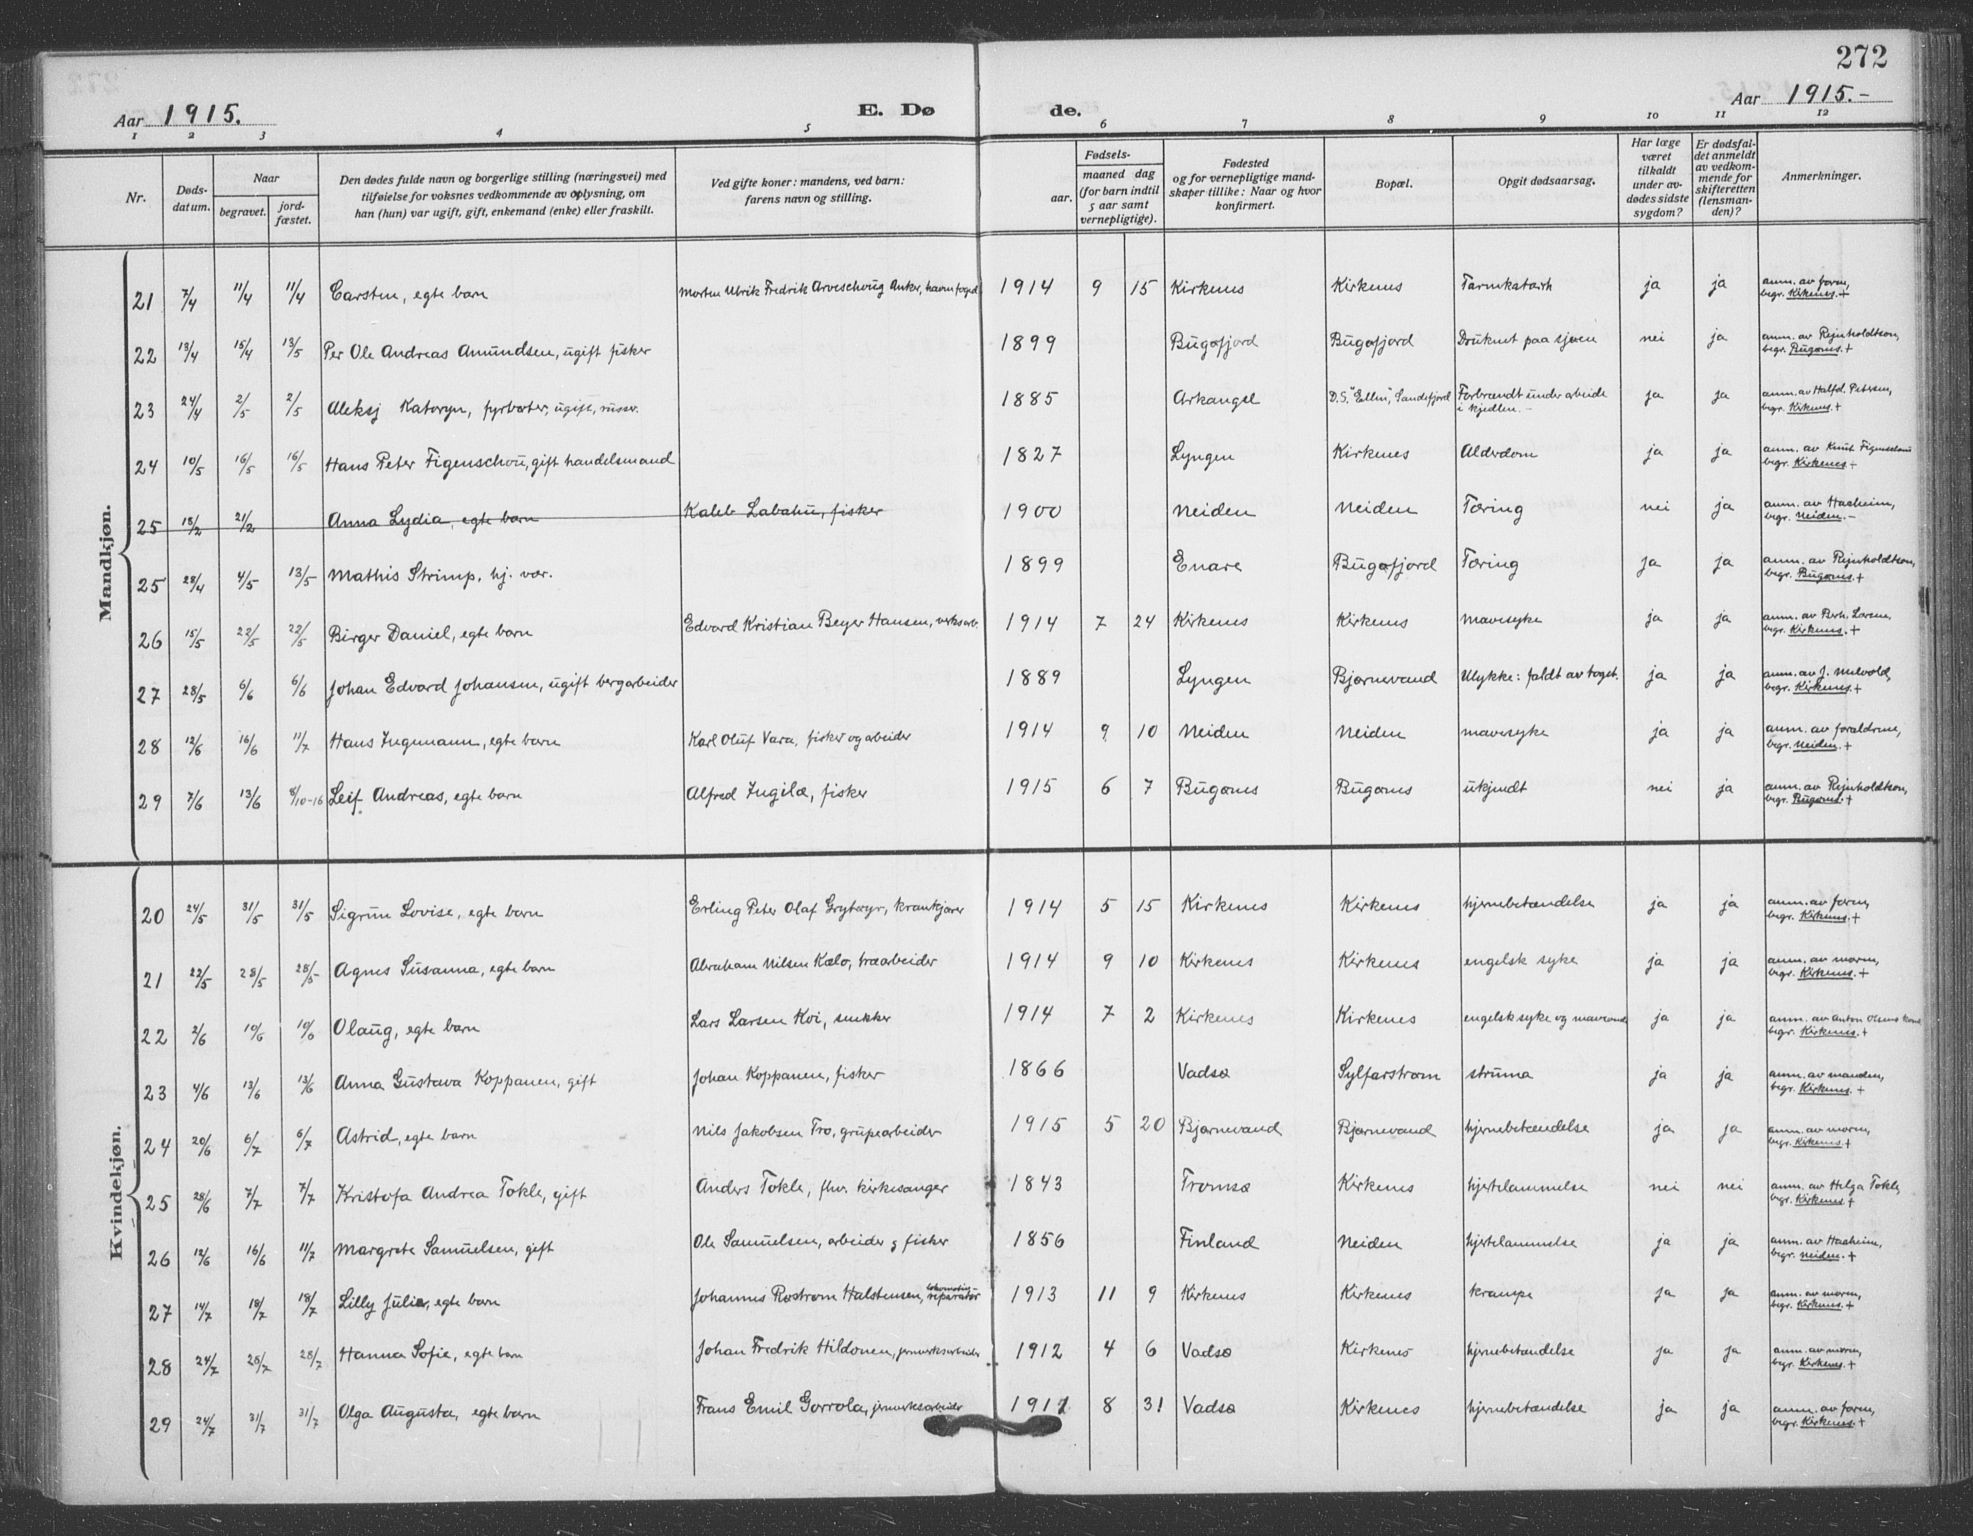 272
Aar 1915. E. Dø de. Aar 1915.-
1 2 3 4 5 6 7 8 9 10 11 12
Nr. Døds-datum. Naar begravet. jord-fæstet. Den dødes fulde navn og borgerlige stilling (næringsvei) med tilføielse for voksnes vedkommende av oplysning, om han (hun) var ugift, gift, enkemand (enke) eller fraskilt. Ved gifte koner: mandens, ved barn: farens navn og stilling. Fødsels- aar. maaned dag (for barn indtil 5 aar samt vernepligtige). Fødested og for vernepligtige mand-skaper tillike: Naar og hvor konfirmert. Bopæl. Opgit dødsaarsag. Har læge været tilkaldt under av-dødes sidste sygdom? Er dødsfal-det anmeldt av vedkom-mende for skifteretten (lensman-den)? Anmerkninger.
Mandkjøn.
21 7/4 11/4 11/4 Carsten, egte barn Morten Ulrik Fredrik Arveschoug Anker, havnefoged 1914 9 15 Kirkenes Kirkenes Tarmkatarh ja ja anm. av faren, begr. Kirkenes.+
22 13/4 15/4 13/5 Per Ole Andreas Amundsen, ugift fisker 1899 Bugøfjord Bugøfjord Druknet paa sjøen nei ja anm. av Rejnholdtson, begr. Bugønes.+
23 24/4 2/5 2/5 Aleksj Katoryn, fyrbøter, ugift, russer. 1885 Arkangel D.S. "Ellin", Sandefjord Forbrændt under arbeide i kjedlen.- ja ja anm. av Halfd. Petersen, begr. Kirkenes.+
24 10/5 16/5 16/5 Hans Peter Figenschou, gift handelsmand 1827 Lyngen Kirkenes Alderdom ja ja anm. av Knut Figenschou begr. Kirkenes.+
25 18/2 21/2 Anna Lydia, egte barn Kaleb Labahü, fisker 1900 Neiden Neiden Tæring nei ja anm. av Haaheim, begr. Neiden.-
25 28/4 4/5 13/5 Mathis Strimp, hj. vær. 1899 Enare Bugøfjord Tæring ja ja anm. av Rejnholdtson, begr. Bugønes.+
26 15/5 22/5 22/5 Birger Daniel, egte barn Edvard Kristian Beyer Hansen, verksarb. 1914 7 24 Kirkenes Kirkenes mavesyke ja ja anm. av Berh. Lorens, begr. Kirkenes.+
27 28/5 6/6 6/6 Johan Edvard Johansen, ugift bergarbeider 1889 Lyngen Bjørnevand Ulykke: faldt av toget. ja ja anm. av J. Melvold, begr. Kirkenes.+
28 12/6 16/6 11/7 Hans Ingemann, egte barn Karl Oluf Vara, fisker og arbeider 1914 9 10 Neiden Neiden mavesyke ja ja anm. av forældrene, begr. Neiden.+
29 7/6 13/6 8/10-16 Leif Andreas, egte barn Alfred Ingilæ, fisker 1915 6 7 Bugønes Bugønes ukjendt nei ja anm. av Rejnholdtson, begr. Bugønes.+
Kvindekjøn.
20 24/5 31/5 31/5 Sigrun Lovise, egte barn Erling Peter Olaf Grytøyr, krankjører 1914 5 15 Kirkenes Kirkenes hjernebetændelse ja ja anm. av faren, begr. Kirkenes.+
21 22/5 28/5 28/5 Agnes Susanna, egte barn Abraham Nilsen Kælo, træarbeider 1914 9 10 Kirkenes Kirkenes engelsk syke ja ja anm. av moren, begr. Kirkenes.+
22 2/6 10/6 10/6 Olaug, egte barn Lars Larsen Koi, snekker 1914 7 2 Kirkenes Kirkenes engelsk syke og maveonde ja ja anm. av Anton Olsens kone begr. Kirkenes.+
23 4/6 13/6 13/6 Anna Gustava Koppanen, gift Johan Koppanen, fisker 1866 Vadsø Sylfarstrøm struma ja ja anm. av manden, begr. Kirkenes.+
24 20/6 6/7 6/7 Astrid, egte barn Nils Jakobsen Tro, grubearbeider 1915 5 20 Bjørnevand Bjørnevand hjernebetændelse ja ja anm. av moren, begr. Kirkenes.+
25 28/6 7/7 7/7 Kristofa Andrea Tokle, gift Anders Tokle, fhv. kirkesanger 1843 Tromsø Kirkenes hjertelammelse nei nei anm. av Helga Tokle, begr. Kirkenes.+
26 12/6 16/6 11/7 Margrete Samuelsen, gift Ole Samuelsen, arbeider og fisker 1856 Finland Neiden hjertelammelse ja ja anm. av Haaheim, begr. Neiden.+
27 14/7 18/7 18/7 Lilly Julie, egte barn Johannes Rostrøm Halstensen, lokomotiv-reparatør 1913 11 9 Kirkenes Kirkenes krampe ja ja anm. av moren, begr. Kirkenes.+
28 24/7 28/7 28/7 Hanna Sofie, egte barn Johan Fredrik Hildonen, jernverksarbeider 1912 4 6 Vadsø Kirkenes hjernebetændelse ja ja anm. av moren, begr. Kirkenes.+
29 24/7 31/7 31/7 Olga Augusta, egte barn Frans Emil Gorrola, jernverksarbeider 1911 8 31 Vadsø Kirkenes hjernebetændelse ja ja anm. av faren, begr. Kirkenes.+